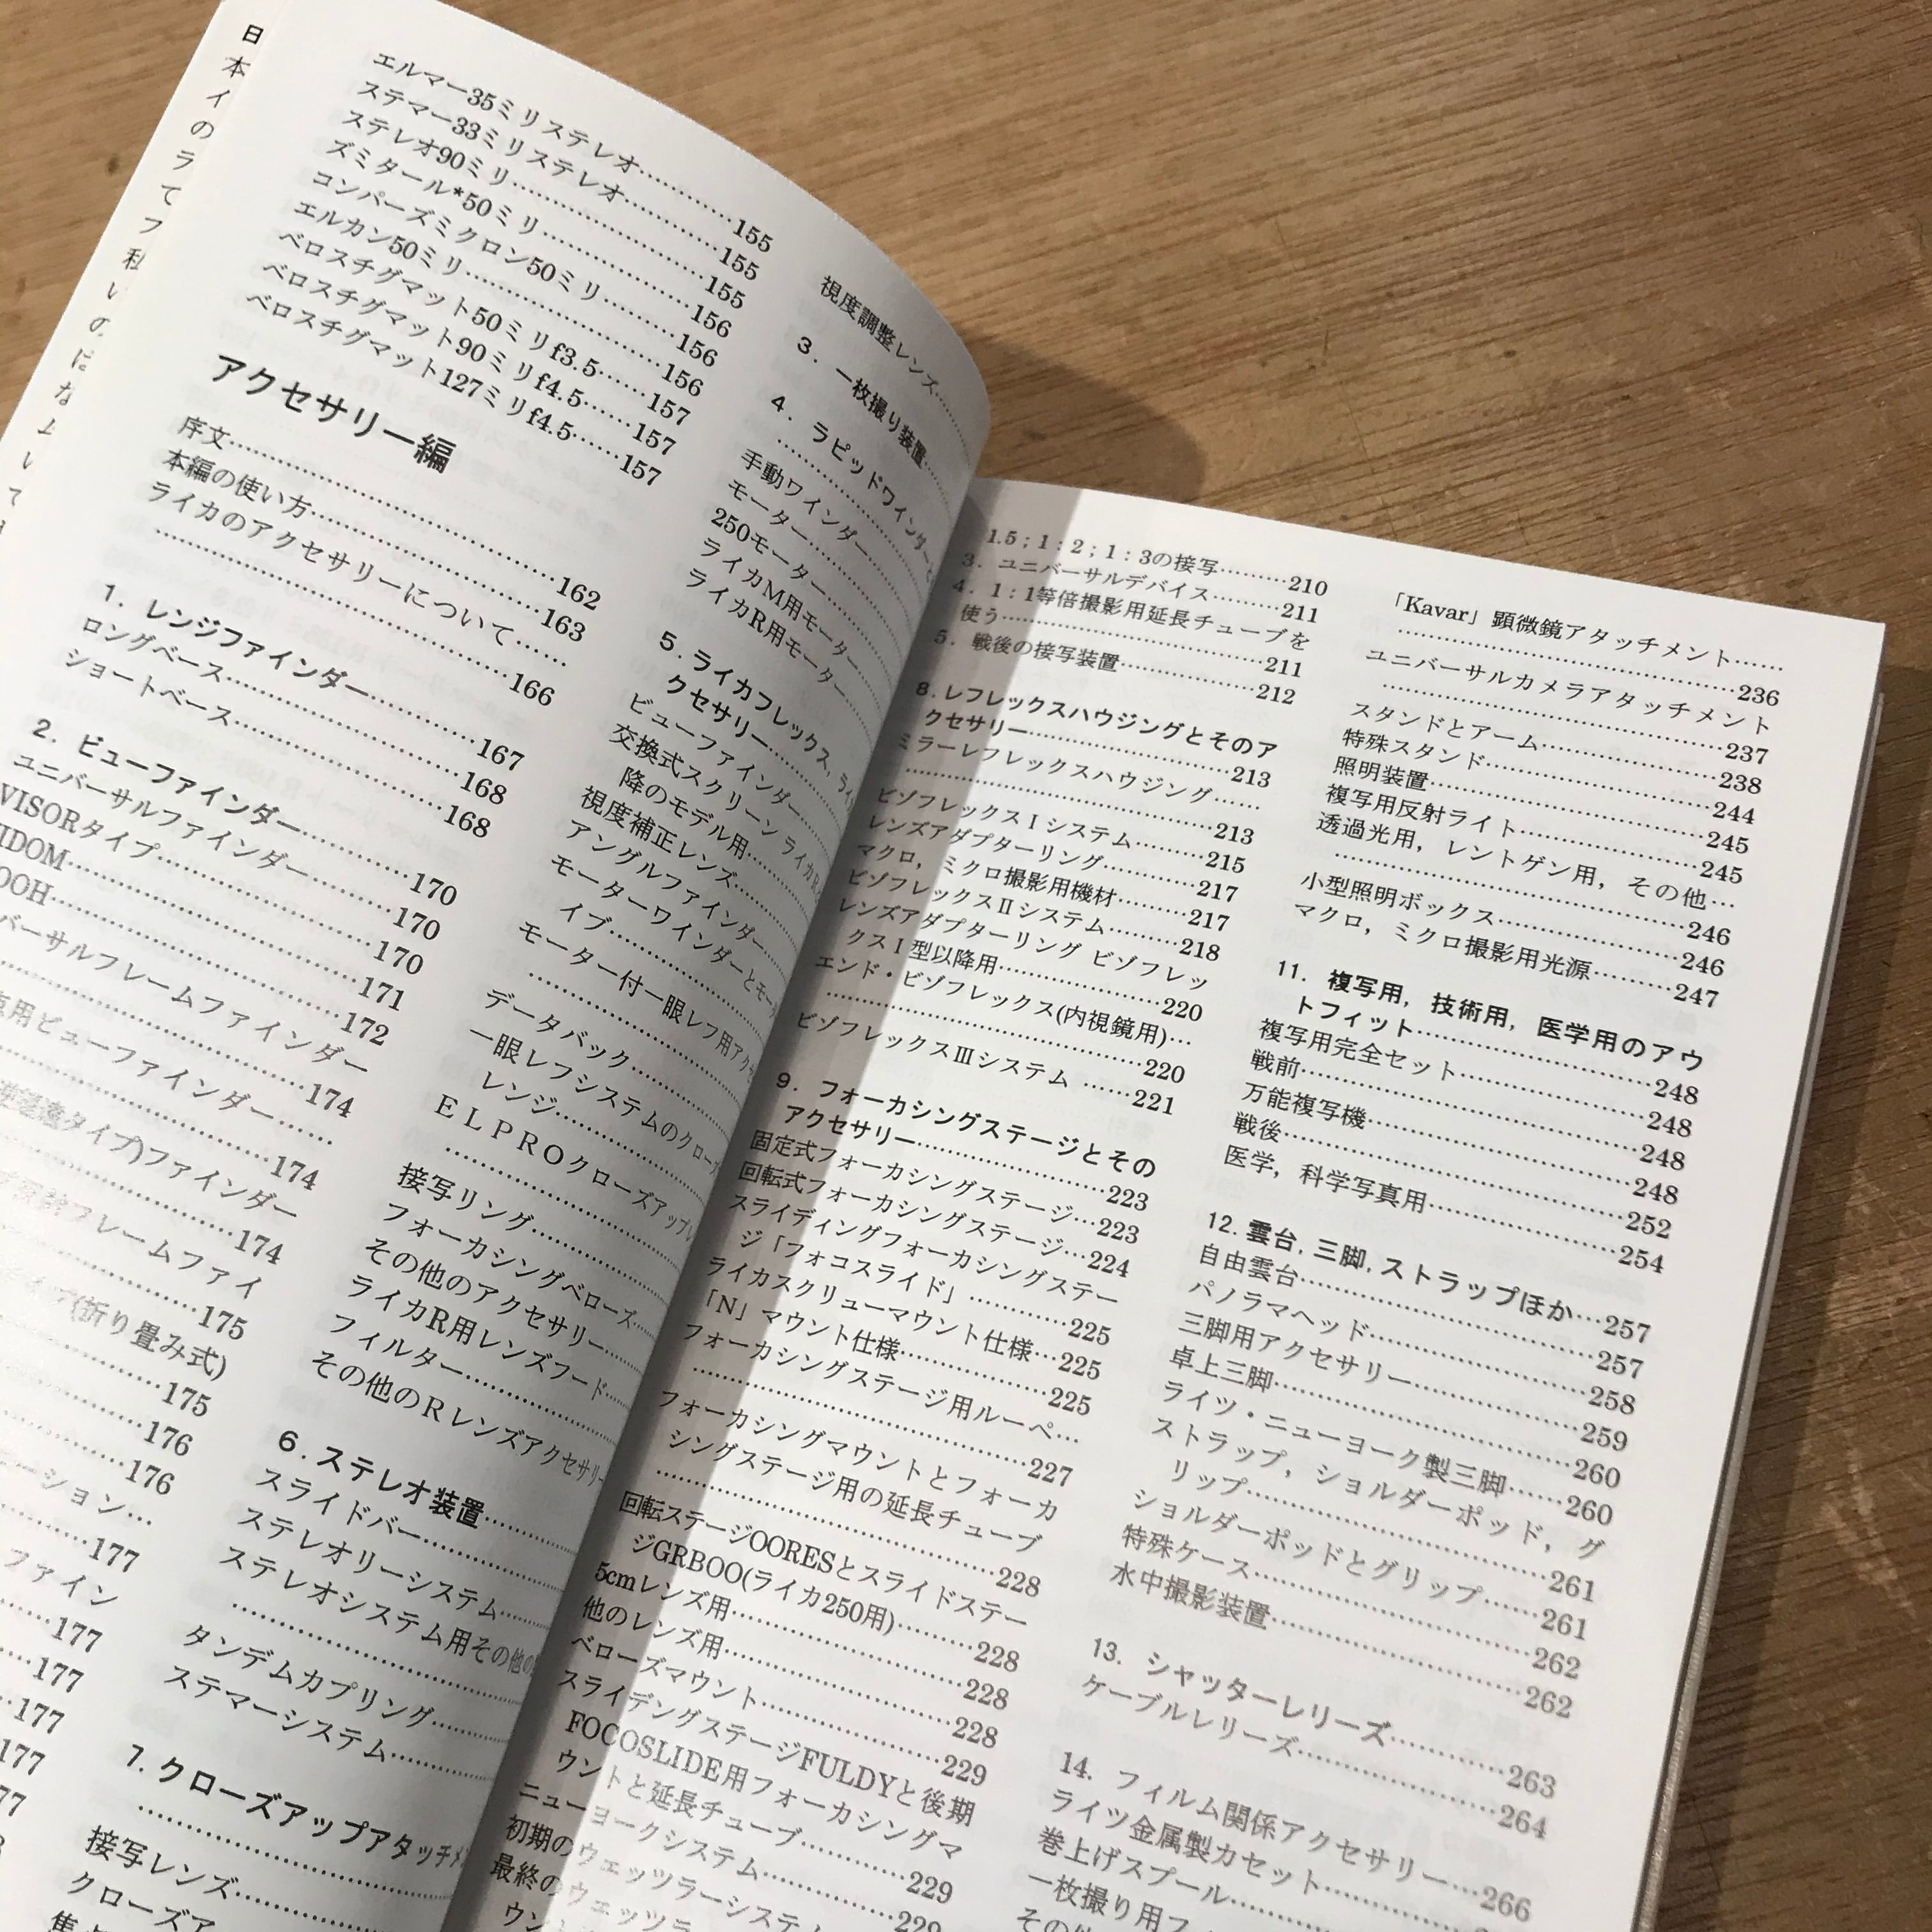 エルマー35ミリステレオ…………155
ステマー33ミリステレオ…………155
ステレオ90ミリ…………155
ズミタール*50ミリ…………156
コンパーズミクロン50ミリ…………156
エルカン50ミリ…………156
ベロスチグマット50ミリf3.5……157
ベロスチグマット90ミリf4.5……157
ベロスチグマット127ミリf4.5……157
アクセサリー編
序文…………162
本編の使い方…………163
ライカのアクセサリーについて……
…………166
1. レンジファインダー…………167
ロングベース…………168
ショートベース…………168
2. ビューファインダー…………170
ユニバーサルファインダー…………170
VISORタイプ…………170
…………171
…………172
バーサルフレームファインダー
…………174
用ビューファインダー……
…………174
タイプ)ファインダー
…………174
フレームファイ
…………175
(折り畳み式)
…………175
…………176
…………176
ーション…
…………177
ファイン
…………177
…177
…177
視度調整レンズ…………
3. 一枚撮り装置…………
4. ラピッドワインダー
…………
手動ワインダー…………
モーター…………
250モーター…………
ライカM用モーター
ライカR用モーター
5. ライカフレックス,
クセサリー…………
ビューファインダー…………
交換式スクリーン ライカR
降のモデル用…………
視度補正レンズ…………
アングルファインダー…………
モーターワインダーとモー
イブ…………
モーター付一眼レフ用アク
…………
データバック…………
一眼レフシステムのクローズ
レンジ…………
ELPROクローズアップ
…………
接写リング…………
フォーカシングベローズ…………
その他のアクセサリー…………
ライカR用レンズフード…………
フィルター…………
その他のRレンズアクセサリー
6. ステレオ装置…………
スライドバー…………
ステレオリーシステム…………
ステレオシステム用その他の
…………
タンデムカプリング…………
ステマーシステム…………
7. クローズアップアタッチメ
…………
接写レンズ…………
クローズア
1.5;1:2;1:3の接写…………210
3. ユニバーサルデバイス…………211
4. 1:1等倍撮影用延長チューブを
使う…………211
5. 戦後の接写装置…………212
8. レフレックスハウジングとそのア
クセサリー…………213
ミラーレフレックスハウジング……
…………213
ビゾフレックスⅠシステム…………215
レンズアダプターリング…………217
マクロ,ミクロ撮影用機材…………217
ビゾフレックスⅡシステム…………218
レンズアダプターリング ビゾフレッ
クスⅠ型以降用…………220
エンド・ビゾフレックス(内視鏡用)…
…………220
ビゾフレックスⅢシステム ……221
9. フォーカシングステージとその
アクセサリー…………223
固定式フォーカシングステージ…223
回転式フォーカシングステージ…224
スライディングフォーカシングステー
ジ「フォコスライド」…………225
ライカスクリューマウント仕様…225
「N」マウント仕様…………225
フォーカシングステージ用ルーペ…
…………227
フォーカシングマウントとフォーカ
シングステージ用の延長チューブ
…………228
回転ステージOORESとスライドステー
ジGRBOO(ライカ250用)…………228
5cmレンズ用…………228
他のレンズ用…………228
ベローズマウント…………229
スライデングステージFULDYと後期
FOCOSLIDE用フォーカシングマ
ウントと延長チューブ…………229
ニューヨークシステム…………229
初期のウェッツラーシステム
最終のウェッツラ
「Kavar」顕微鏡アタッチメント……
…………236
ユニバーサルカメラアタッチメント
…………237
スタンドとアーム…………238
特殊スタンド…………244
照明装置…………245
複写用反射ライト…………245
透過光用,レントゲン用,その他…
…………246
小型照明ボックス…………246
マクロ,ミクロ撮影用光源…………247
11. 複写用,技術用,医学用のアウ
トフィット…………248
複写用完全セット…………248
戦前…………248
万能複写機…………248
戦後…………252
医学,科学写真用…………254
12. 雲台,三脚,ストラップほか…257
自由雲台…………257
パノラマヘッド…………258
三脚用アクセサリー…………259
卓上三脚…………260
ライツ・ニューヨーク製三脚……260
ストラップ,ショルダーポッド,グ
リップ…………261
ショルダーポッドとグリップ……261
特殊ケース…………262
水中撮影装置…………262
13. シャッターレリーズ…………263
ケーブルレリーズ…………264
14. フィルム関係アクセサリー…266
ライツ金属製カセット…………
巻上げスプール…………
一枚撮り用フ